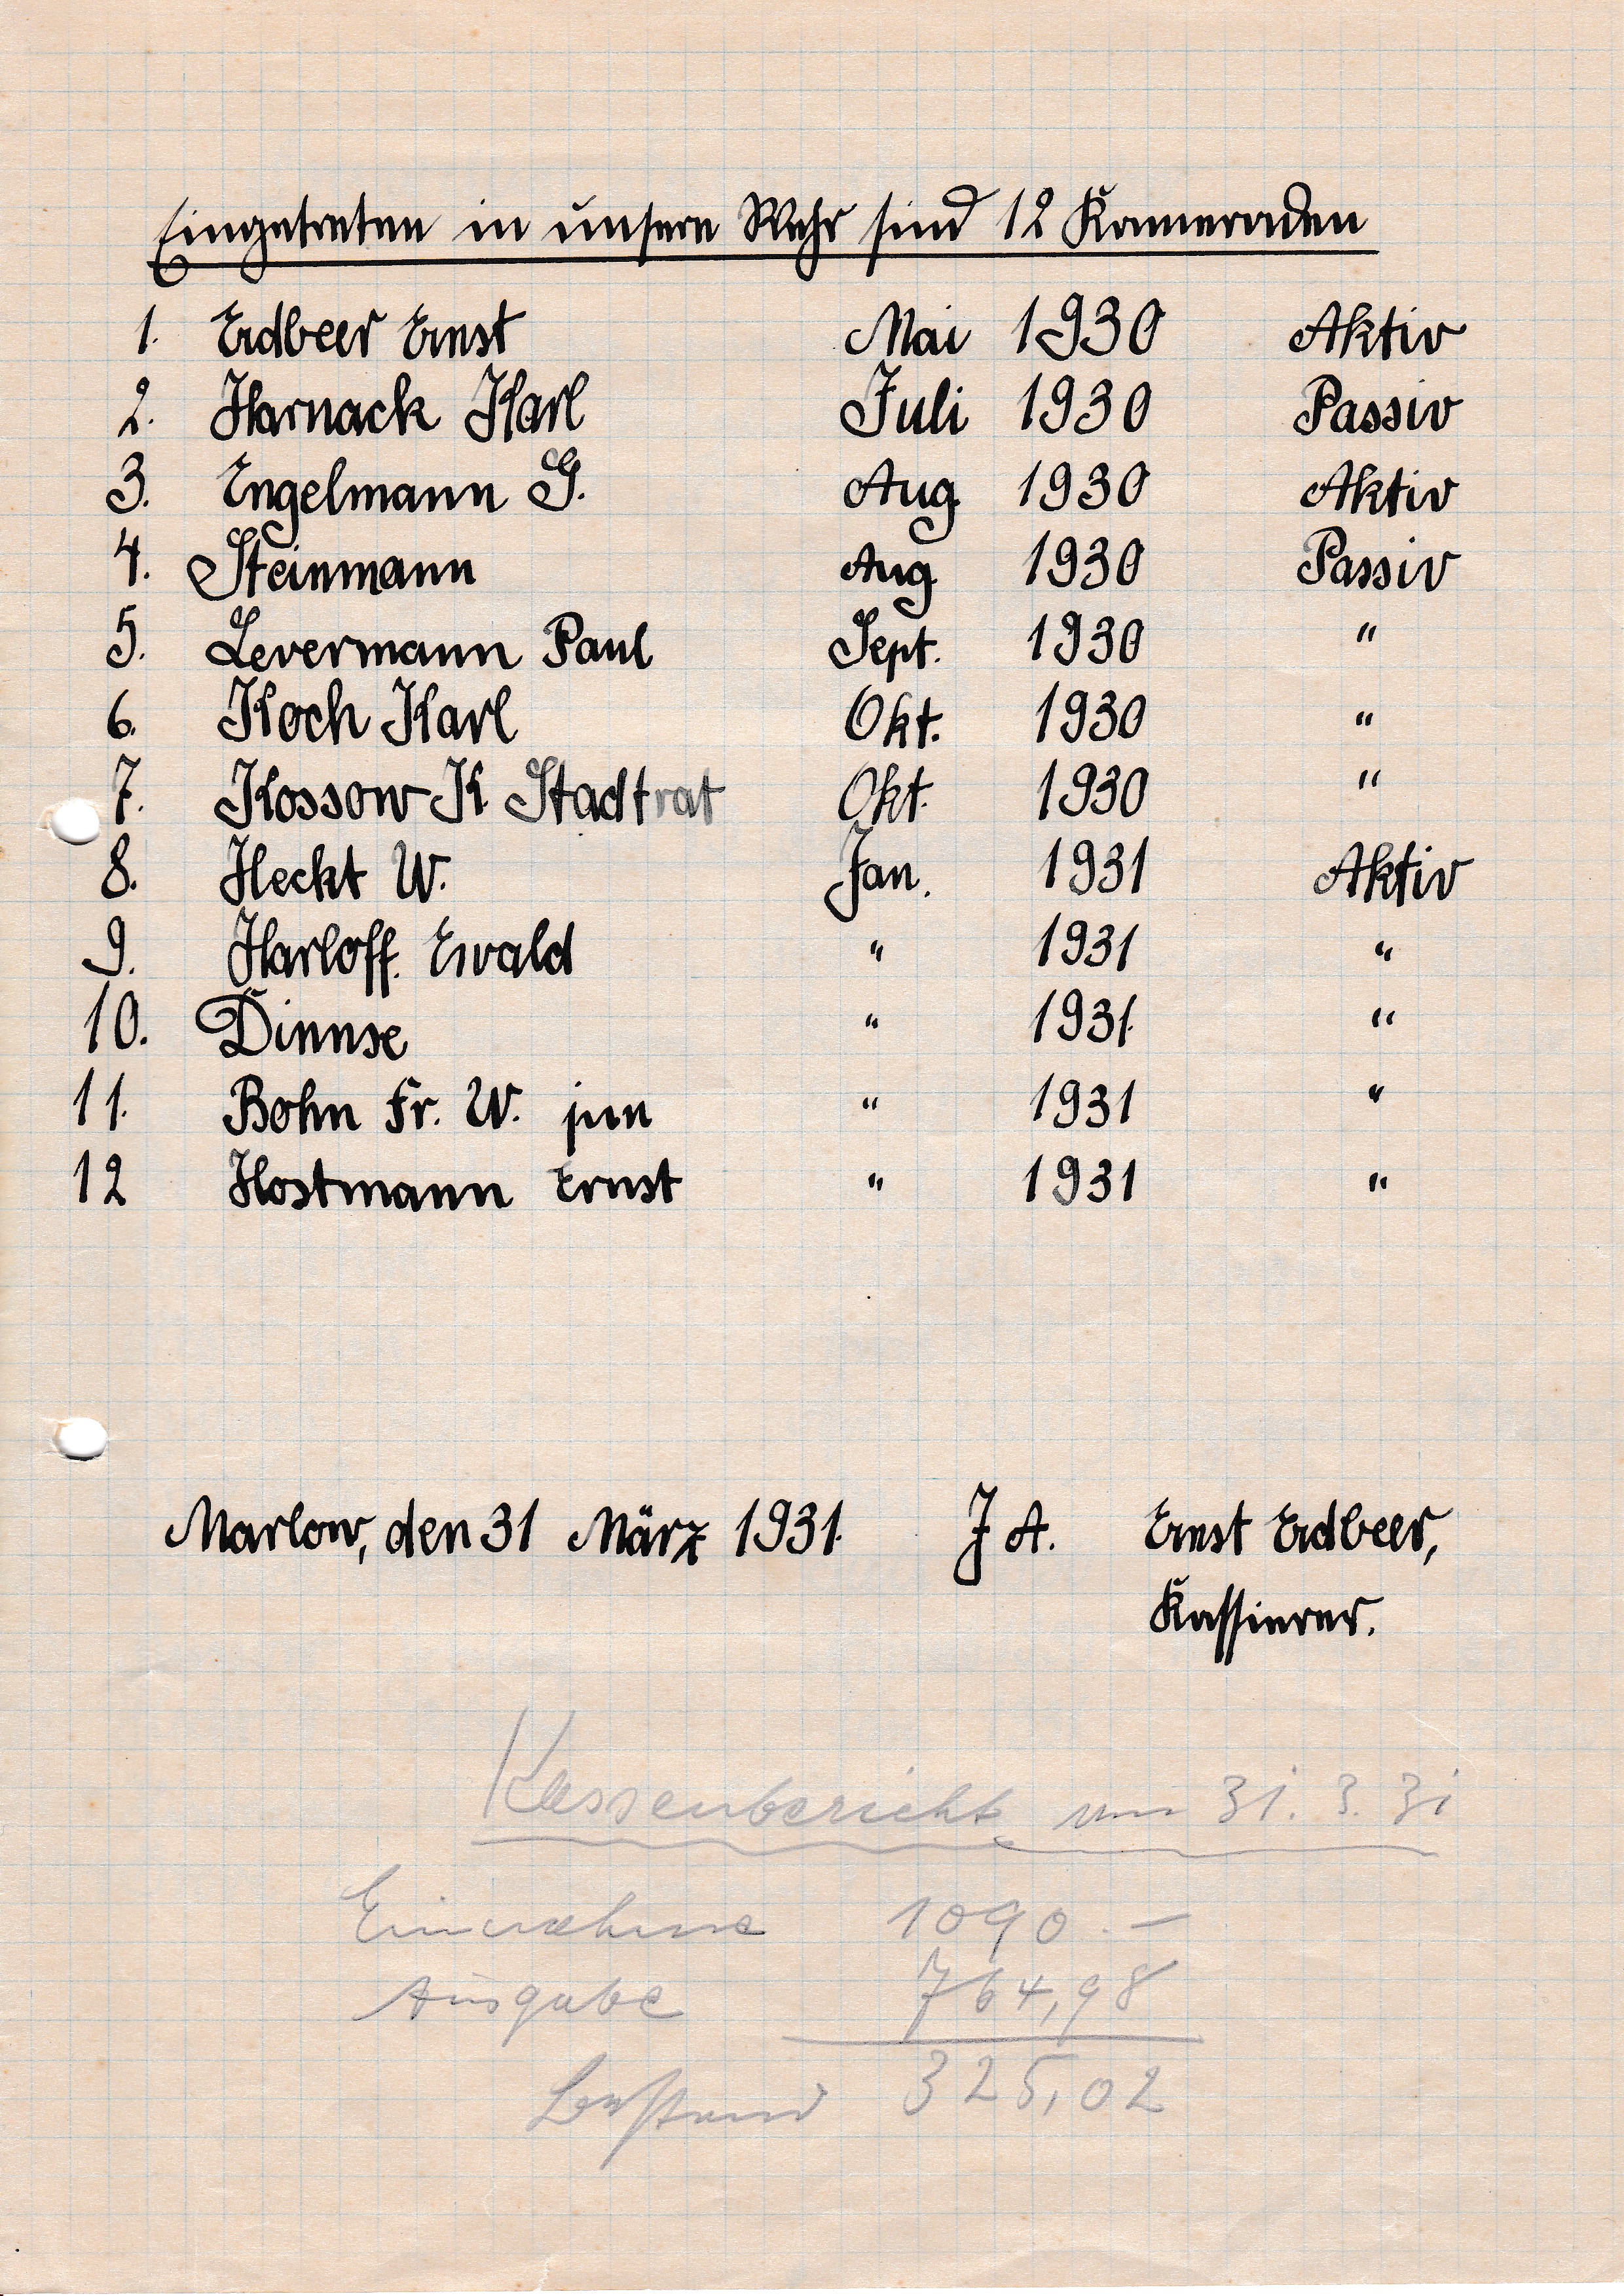 Eingetreten in unsere Wehr sind 12 Kameraden
1. Erdbeer Ernst Mai 1930 Aktiv
2. Harnack Karl Juli 1930 Passiv
3. Engelmann G. Aug 1930 Aktiv
4. Steinmann Aug 1930 Passiv
5. Levermann Paul Sept. 1930 "
6. Koch Karl Okt. 1930 "
7. Kossow K. Stadtrat Okt. 1930 "
8. Heckt W. Jan. 1931 Aktiv
9. Harloff. Ewald " 1931 "
10. Dinnse " 1931. "
11. Bohn Fr. W. jun " 1931 "
12 Hostmann Ernst " 1931 "
Marlow, den 31 März 1931. J A. Ernst Erdbeer,
Kassierer.
Kassenbericht am 31. 3. 31
Einnahme 1090.—
Ausgabe 764,98
Bestand 325,02